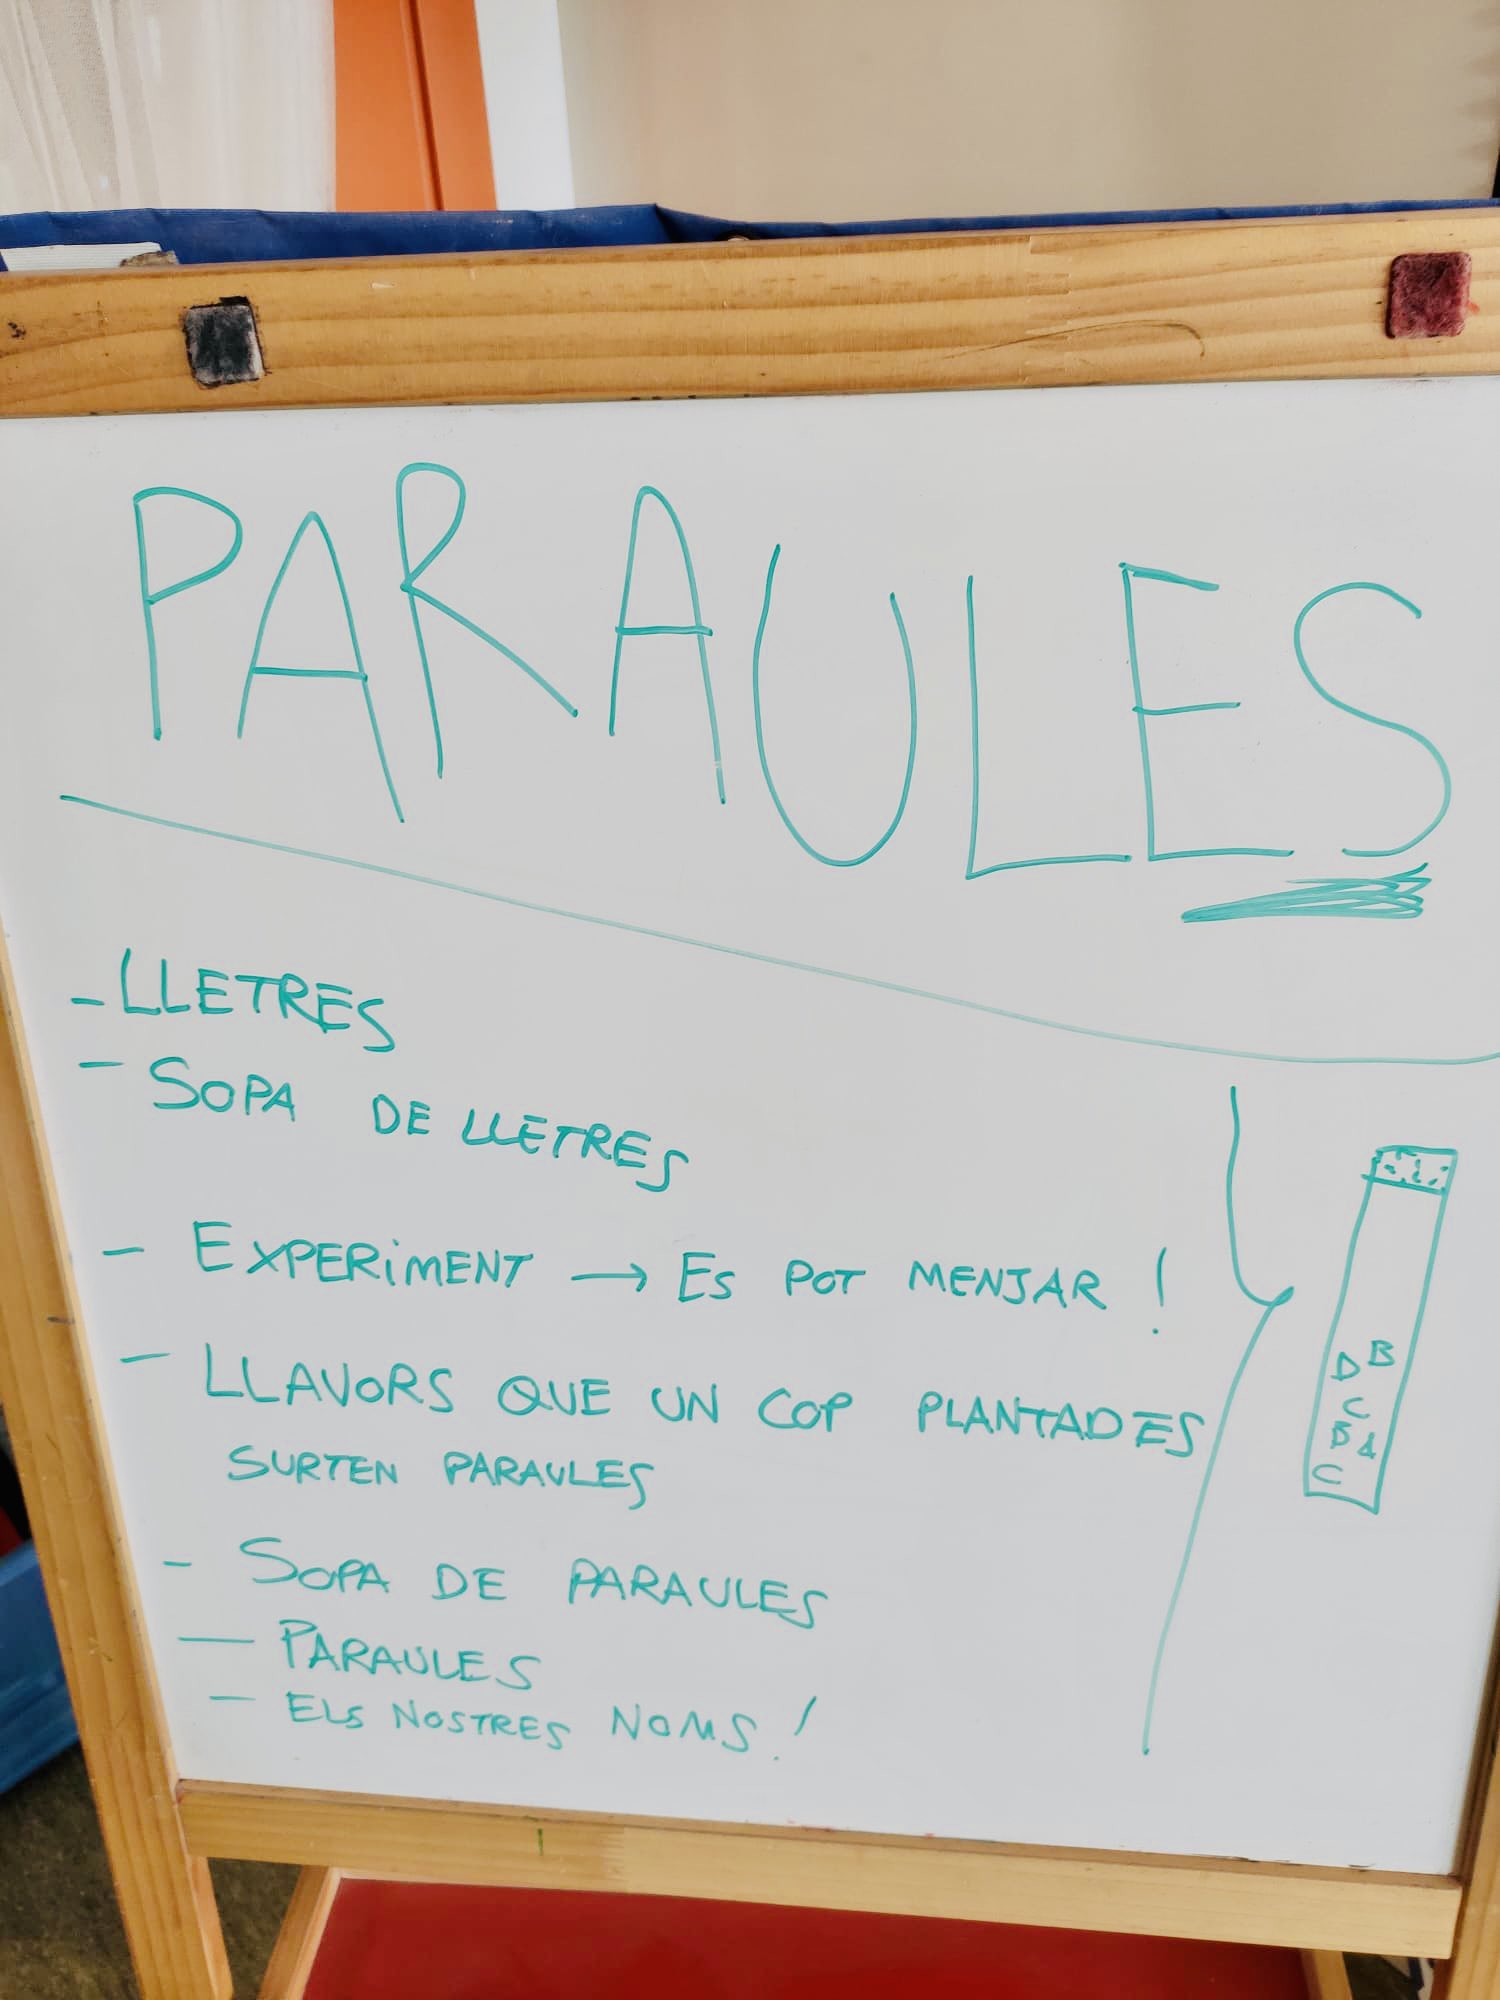 PARAULES
- LLETRES
- SOPA DE LLETRES
- EXPERIMENT → ES POT MENJAR !
- LLAVORS QUE UN COP PLANTADES
SURTEN PARAULES
- SOPA DE PARAULES
- PARAULES
- ELS NOSTRES NOMS !
D B
C
B A
C